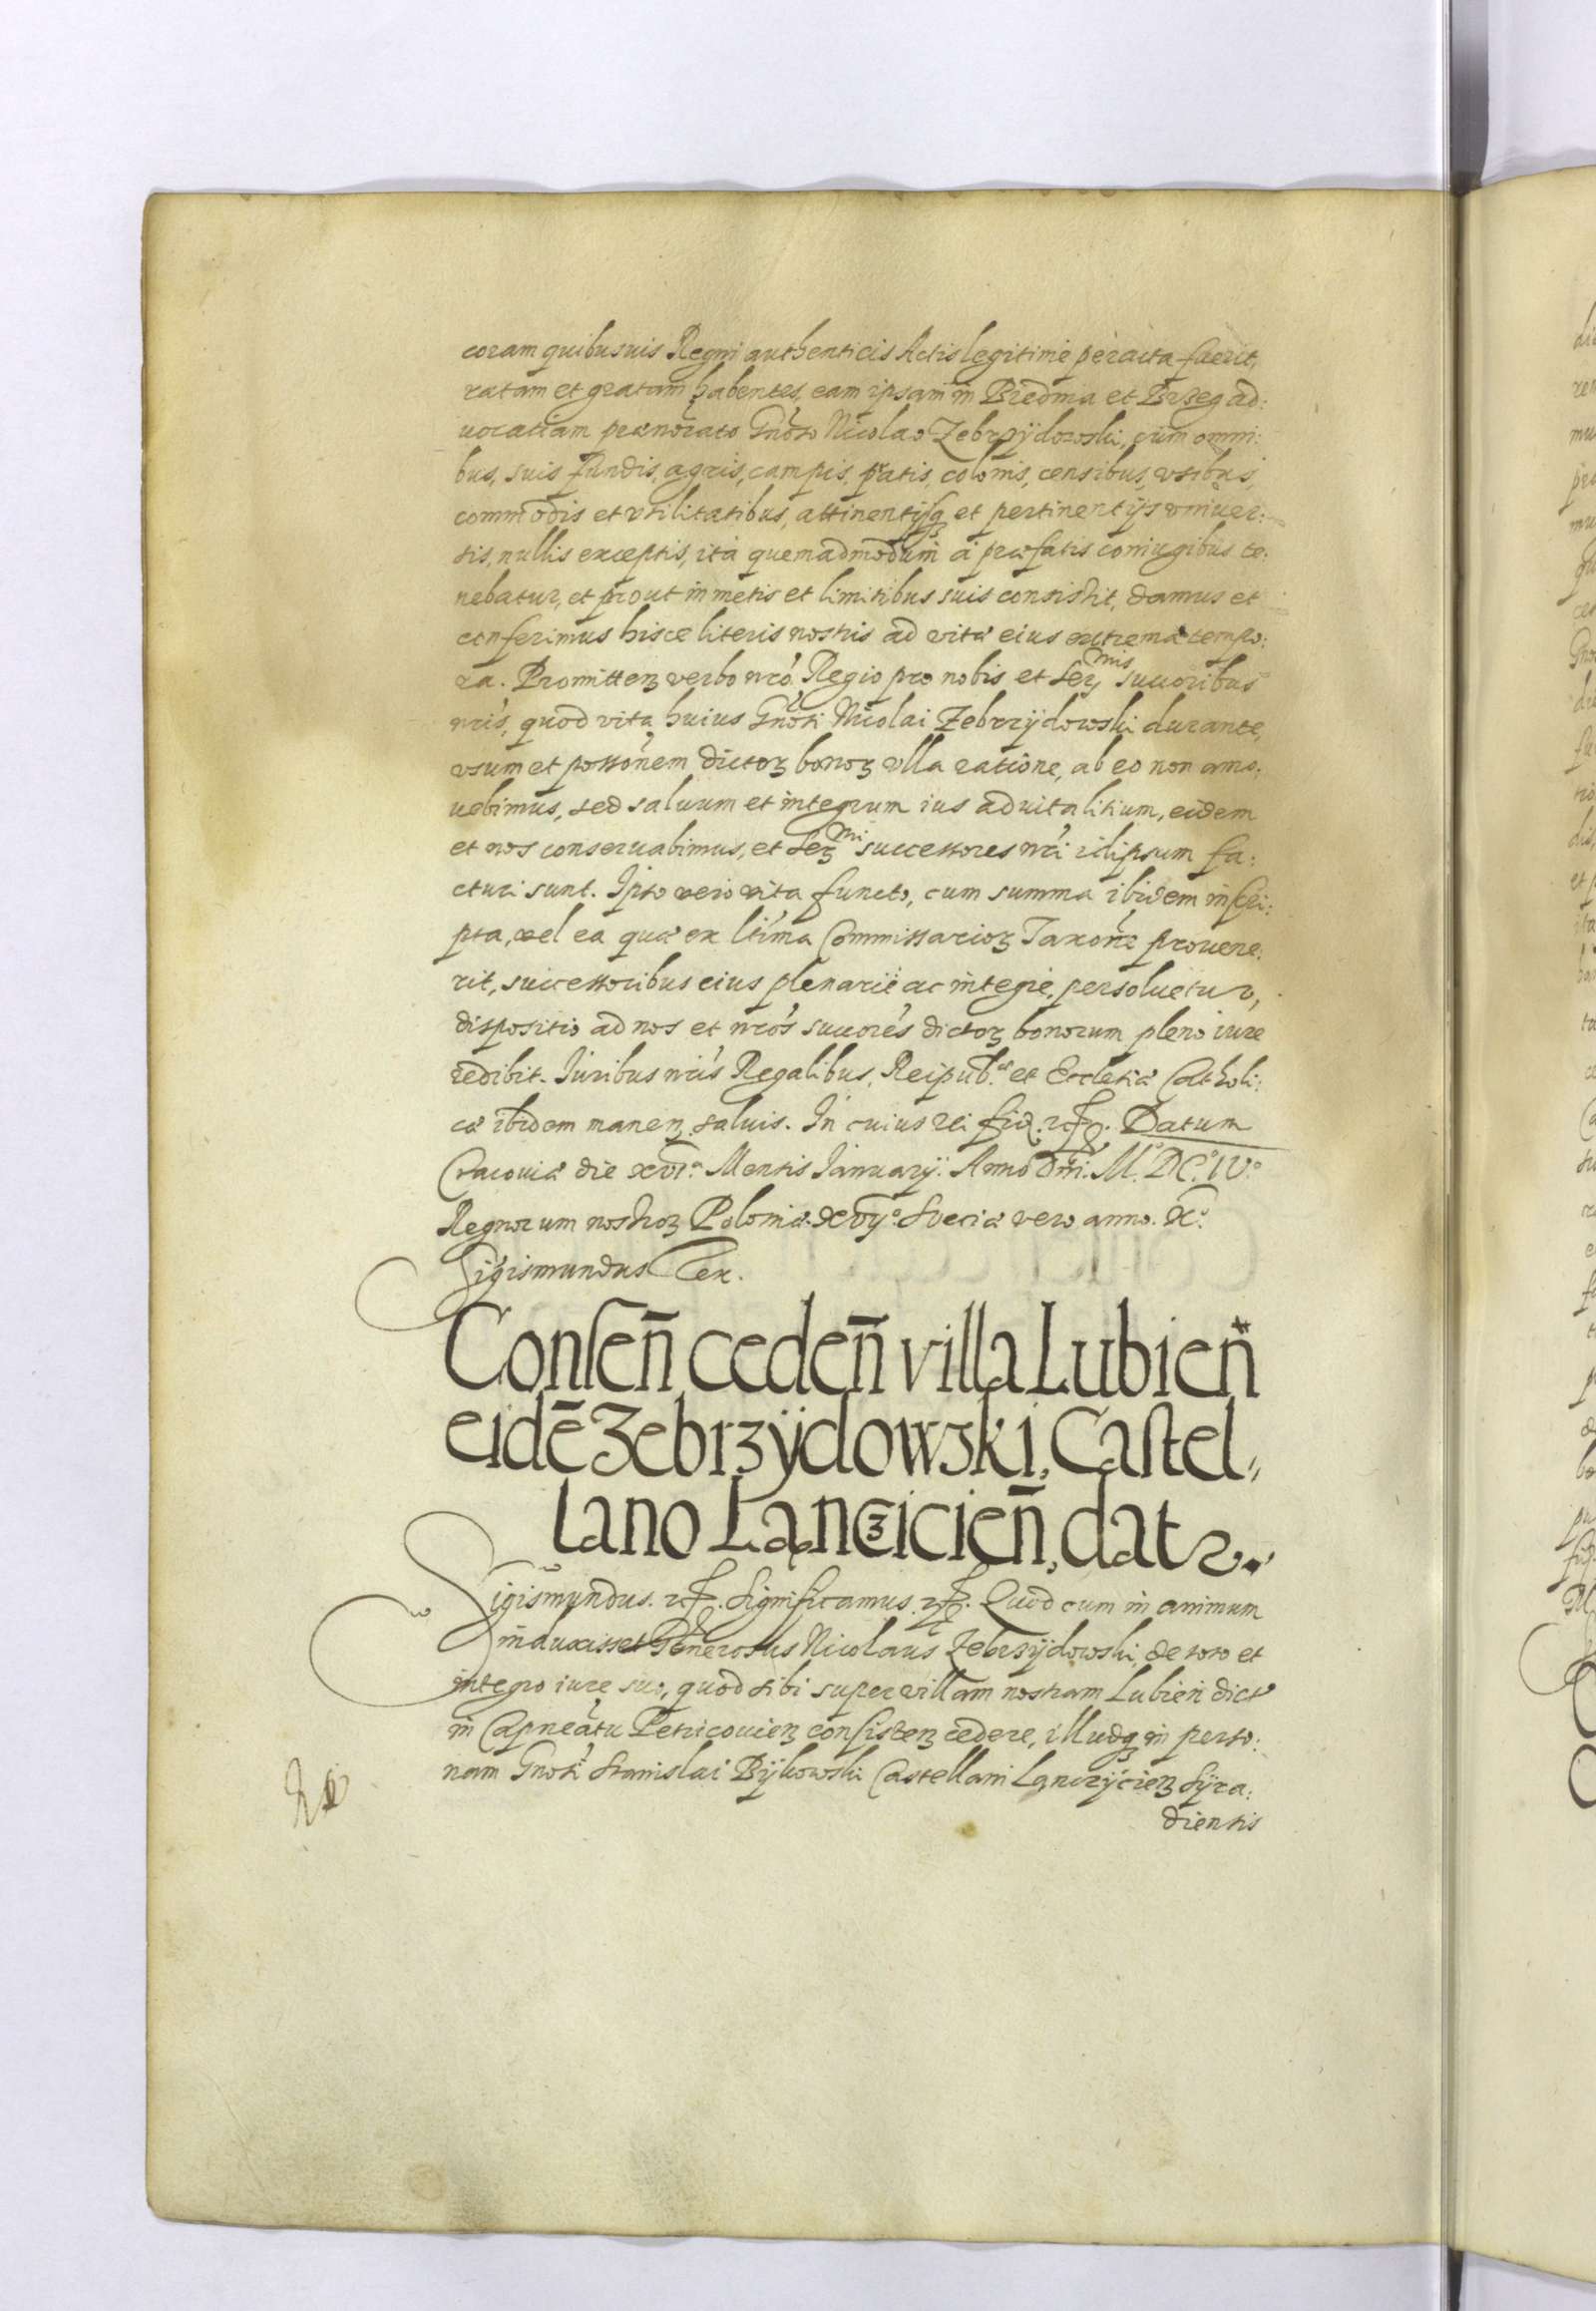 coram quibusuis Regni authenticis Actis legitimè peracta fuerit,
ratam et gratam habentes, eam ipsam in Biedmia et Brzeg ad:
uocatiam prænotato Gnoso Nicolao Zebrzÿdowski, cum omni:
bus, suis fundis, agris, campis, pratis, colonis, censibus, vsibus,
commodis et vtilitatibus, attinentÿsq et pertinentÿs vniuer:
sis, nullis exceptis, ità quemadmodum à præfatis coniugibus te:
nebatur, et prout in metis et limitibus suis consistit, damus et
conferimus hisce literis nostris ad vitæ eius extrema tempo:
ra. Promitten verbo nro Regio pro nobis et Ser mis succoribus
nris, quod vita huius Gnosi Nicolai Zebrzÿdowski durante,
vsum et possonem dictoꝝ bonoꝝ vlla ratione, ab eo non amo:
uebimus, sed saluum et integrum ius aduitalitium, eidem
et nos conseruabimus, et Ser mi successores nri id ipsum fa:
cturi sunt. Ipso vero vita functo, cum summa ibidem inscri:
pta, vel ea quæ ex ltima Commissarioꝝ Taxone prouene:
rit, successoribus eius plenariè ac integrè, persoluetur,
dispositio ad nos et nros succores dictoꝝ bonorum pleno iure
redibit. Iuribus nris Regalibus, Reipub.æ et Ecclesiæ Catholi:
cæ ibidem manen saluis. In cuius rei fid. Datum
Cracouiæ die xvi.a Mensis Ianuarÿ. Anno Dni. M.o DC.o IV.o
Regnorum nostroꝝ Poloniæ. xvÿ.o Sueciæ vero anno. X.o
Sigismundus Rex.
Consen̄ ceden̄ villa Lubien̄
eidē Zebrzÿdowski, Castel„
lano Łancicien̄, dat
Sigismundus. Significamus. Quod cum in animum
induxisset Generosus Nicolaus Zebrzÿdowski, de toto et
integro iure suo, quod sibi super villam nostram Lubien dict
in Capneatu Petricouien consisten cedere, illudq in perso:
nam Gnosi Stanislai Bÿkowski Castellani Lancÿcien Sÿra:
diensis